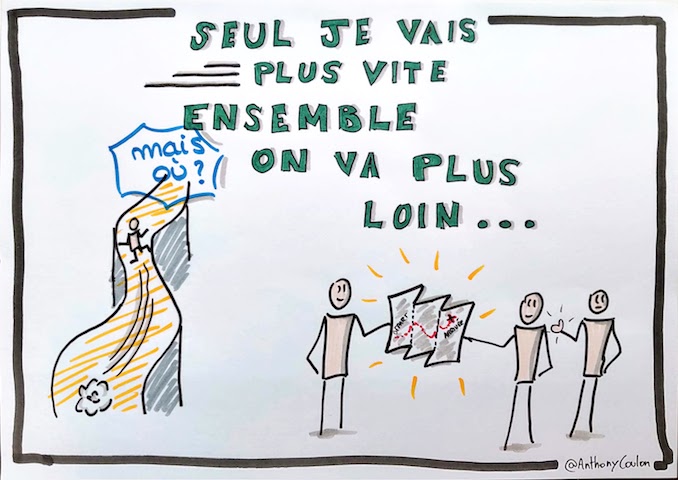 SEUL JE VAIS
PLUS VITE
ENSEMBLE
ON VA PLUS
LOIN...
mais
où ?
START
ARRIVÉE
@AnthonyCoulon